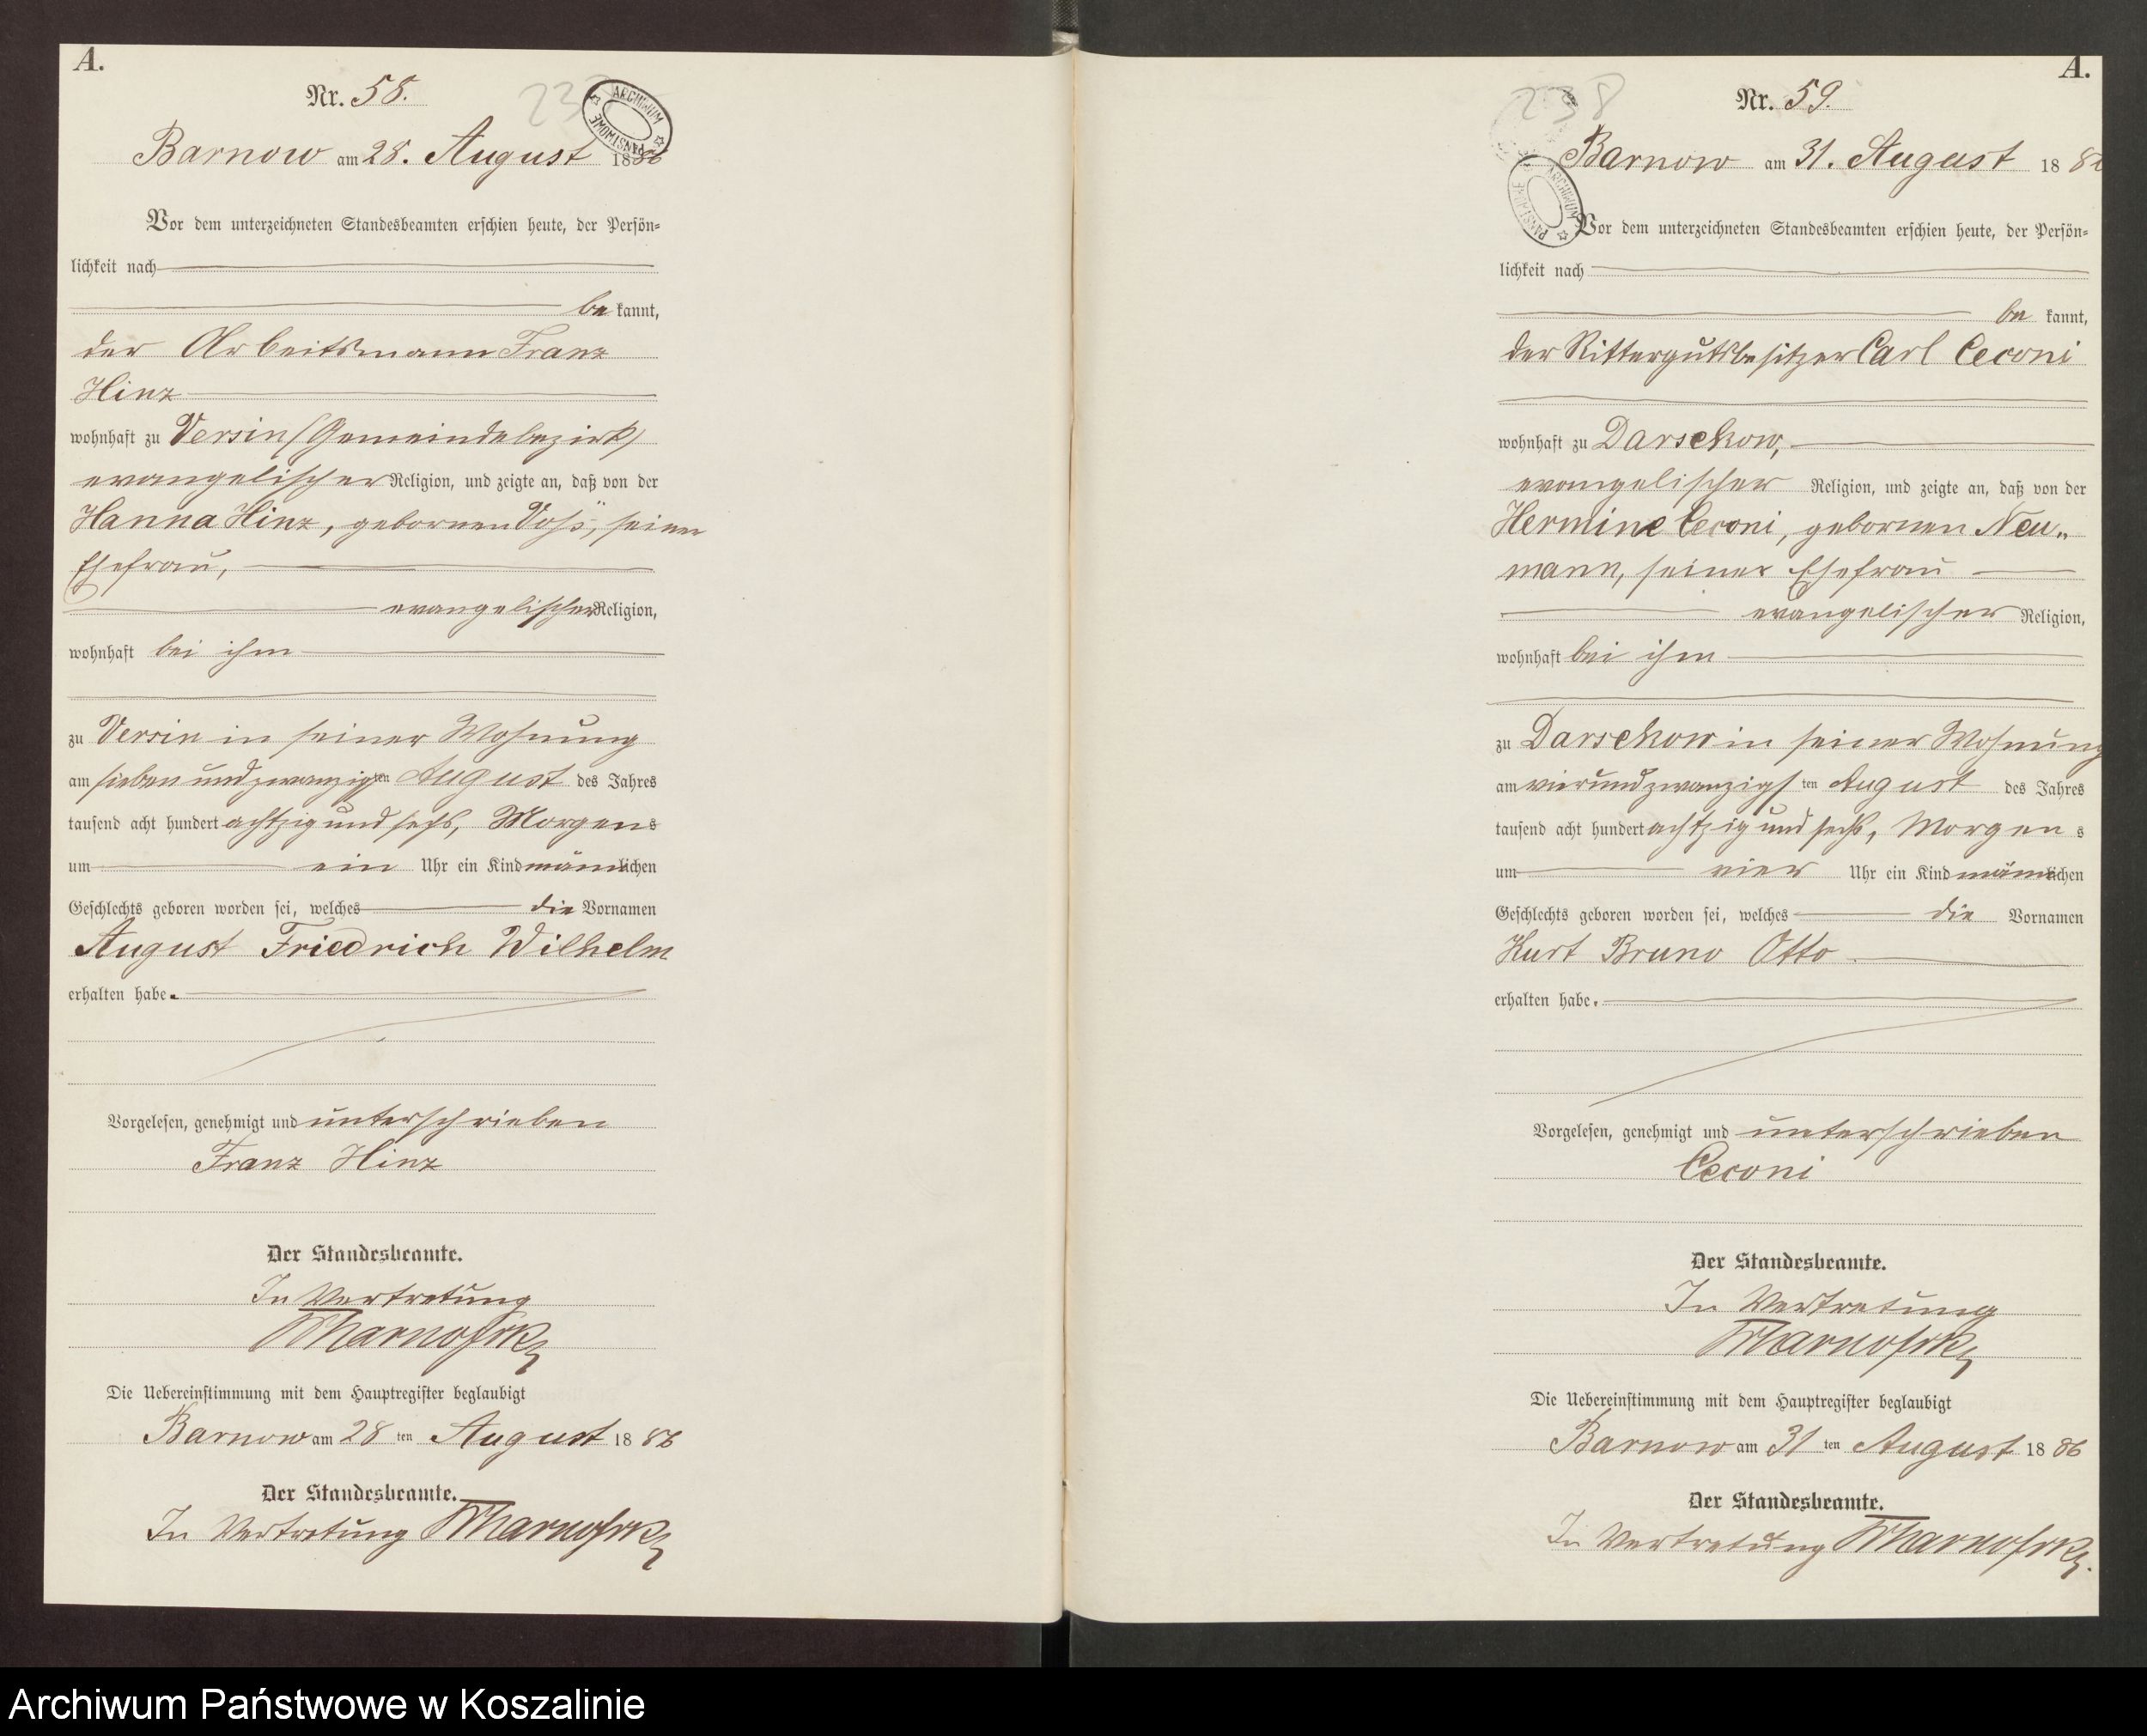 A.
Nr. 58.
ARCHIWUM PAŃSTWOWE
Barnow am 28. August 1886
Vor dem unterzeichneten Standesbeamten erschien heute, der Persön-
lichkeit nach
be kannt,
der Arbeitsmann Franz
Hinz
wohnhaft zu Versin (Gemeindebezirk)
evangelischer Religion, und zeigte an, daß von der
Hanna Hinz, gebornen Voß, seiner
Ehefrau,
evangelischer Religion,
wohnhaft bei ihm
zu Versin in seiner Wohnung
am sieben und zwanzigsten August des Jahres
tausend acht hundert achtzig und sechs, Morgens
um ein Uhr ein Kind männlichen
Geschlechts geboren worden sei, welches die Vornamen
August Friedrich Wilhelm
erhalten habe.
Vorgelesen, genehmigt und unterschrieben
Franz Hinz
Der Standesbeamte.
In Vertretung
Die Uebereinstimmung mit dem Hauptregister beglaubigt
Barnow am 28 ten August 1886
Der Standesbeamte.
In Vertretung
A.
238
Nr. 59.
ARCHIWUM PAŃSTWOWE
Barnow am 31. August 188
Vor dem unterzeichneten Standesbeamten erschien heute, der Persön-
lichkeit nach
be kannt,
der Rittergutsbesitzer Carl Ceconi
wohnhaft zu Darsekow,
evangelischer Religion, und zeigte an, daß von der
Hermine Ceconi, gebornen Neu-
mann, seiner Ehefrau
evangelischer Religion,
wohnhaft bei ihm
zu Darsekow in seiner Wohnung
am vierundzwanzigsten August des Jahres
tausend acht hundert achtzig und sechs, Morgens
um vier Uhr ein Kind männlichen
Geschlechts geboren worden sei, welches die Vornamen
Kurt Bruno Otto
erhalten habe.
Vorgelesen, genehmigt und unterschrieben
Ceconi
Der Standesbeamte.
In Vertretung
Die Uebereinstimmung mit dem Hauptregister beglaubigt
Barnow am 31 ten August 1886
Der Standesbeamte.
In Vertretung
Archiwum Państwowe w Koszalinie